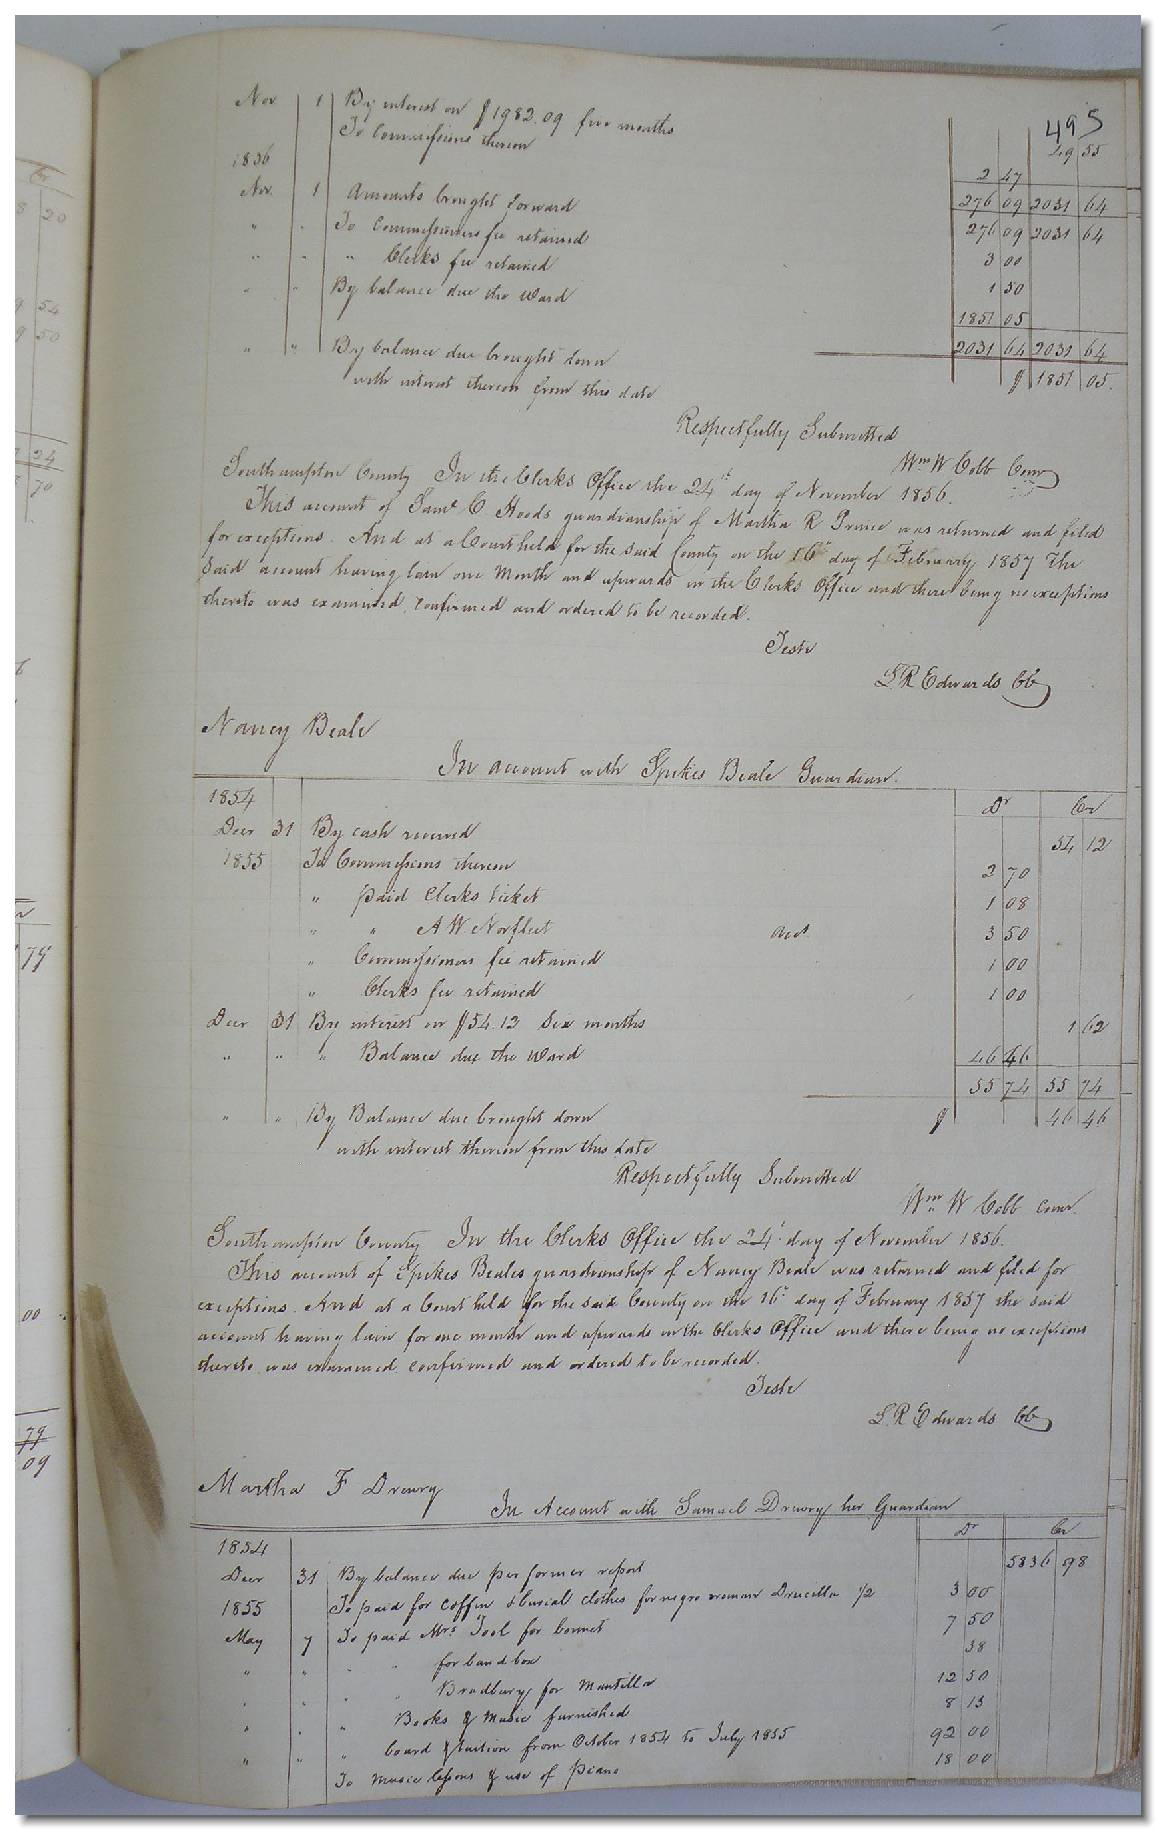 495
Nov 1 By interest on $1982.09 five months 49 55
To Commissions thereon 2 47
276 09 2031 64
1856
Nov. 1 Amounts brought forward 276 09 2031 64
" " To Commissioners fee retained 3 00
" " " Clerks fee retained 1 50
" " By balance due the ward 1851 05
2031 64 2031 64
" " By balance due brought down $ 1851 05.
with interest thereon from this date
Respectfully Submitted
Wm W Cobb Comr
Southampton County In the Clerks Office the 24th day of November 1856.
This account of Saml C Hoods guardianship of Martha R was returned and filed
for exceptions. And at a Court held for the said County on the 16th day of February 1857 the
said account having lain one month and upwards in the Clerks Office and there being no exceptions
thereto was examined, confirmed and ordered to be recorded.
Teste
L R Edwards CC
Nancy Beale
In account with Spikes Beale Guardian.
Dr Cr
1854
Decr 31 By cash received 54 12
1855 To Commissions thereon 2 70
" paid Clerks ticket 1 08
" " A W Norfleet acct 3 50
" Commissioners fee retained 1 00
" Clerks fee retained 1 00
Decr 31 By interest on $54.12 Six months 1 62
" " " Balance due the ward 46 46
55 74 55 74
" " By Balance due brought down $ 46 46
with interest thereon from this date
Respectfully Submitted
Wm W Cobb comr.
Southampton County In the Clerks Office the 24t day of November 1856.
This account of Spikes Beales guardianship of Nancy Beale was returned and filed for
exceptions. And at a Court held for the said County on the 16th day of February 1857 the said
account having lain for one month and upwards in the Clerks Office and there being no exceptions
thereto was examined, confirmed and ordered to be recorded.
Teste
L R Edwards CC
Martha F Drewry
In Account with Samuel Drewry her Guardian
Dr Cr
1854
Decr 31 By balance due per former report 5836 98
1855 To paid for coffin & burial clothes for negro woman Drucella 1/2 3 00
May 7 To paid Mrs Tool for bonnet 7 50
" " " " for band box 38
" " " " Bradbury for Mantilla 12 50
" " " Books & Music furnished 8 13
" " " board & tuition from October 1854 to July 1855 92 00
To music lessons & use of piano 18 00
Cr
8 20
9 54
9 50
7 24
70
79
00
79
09